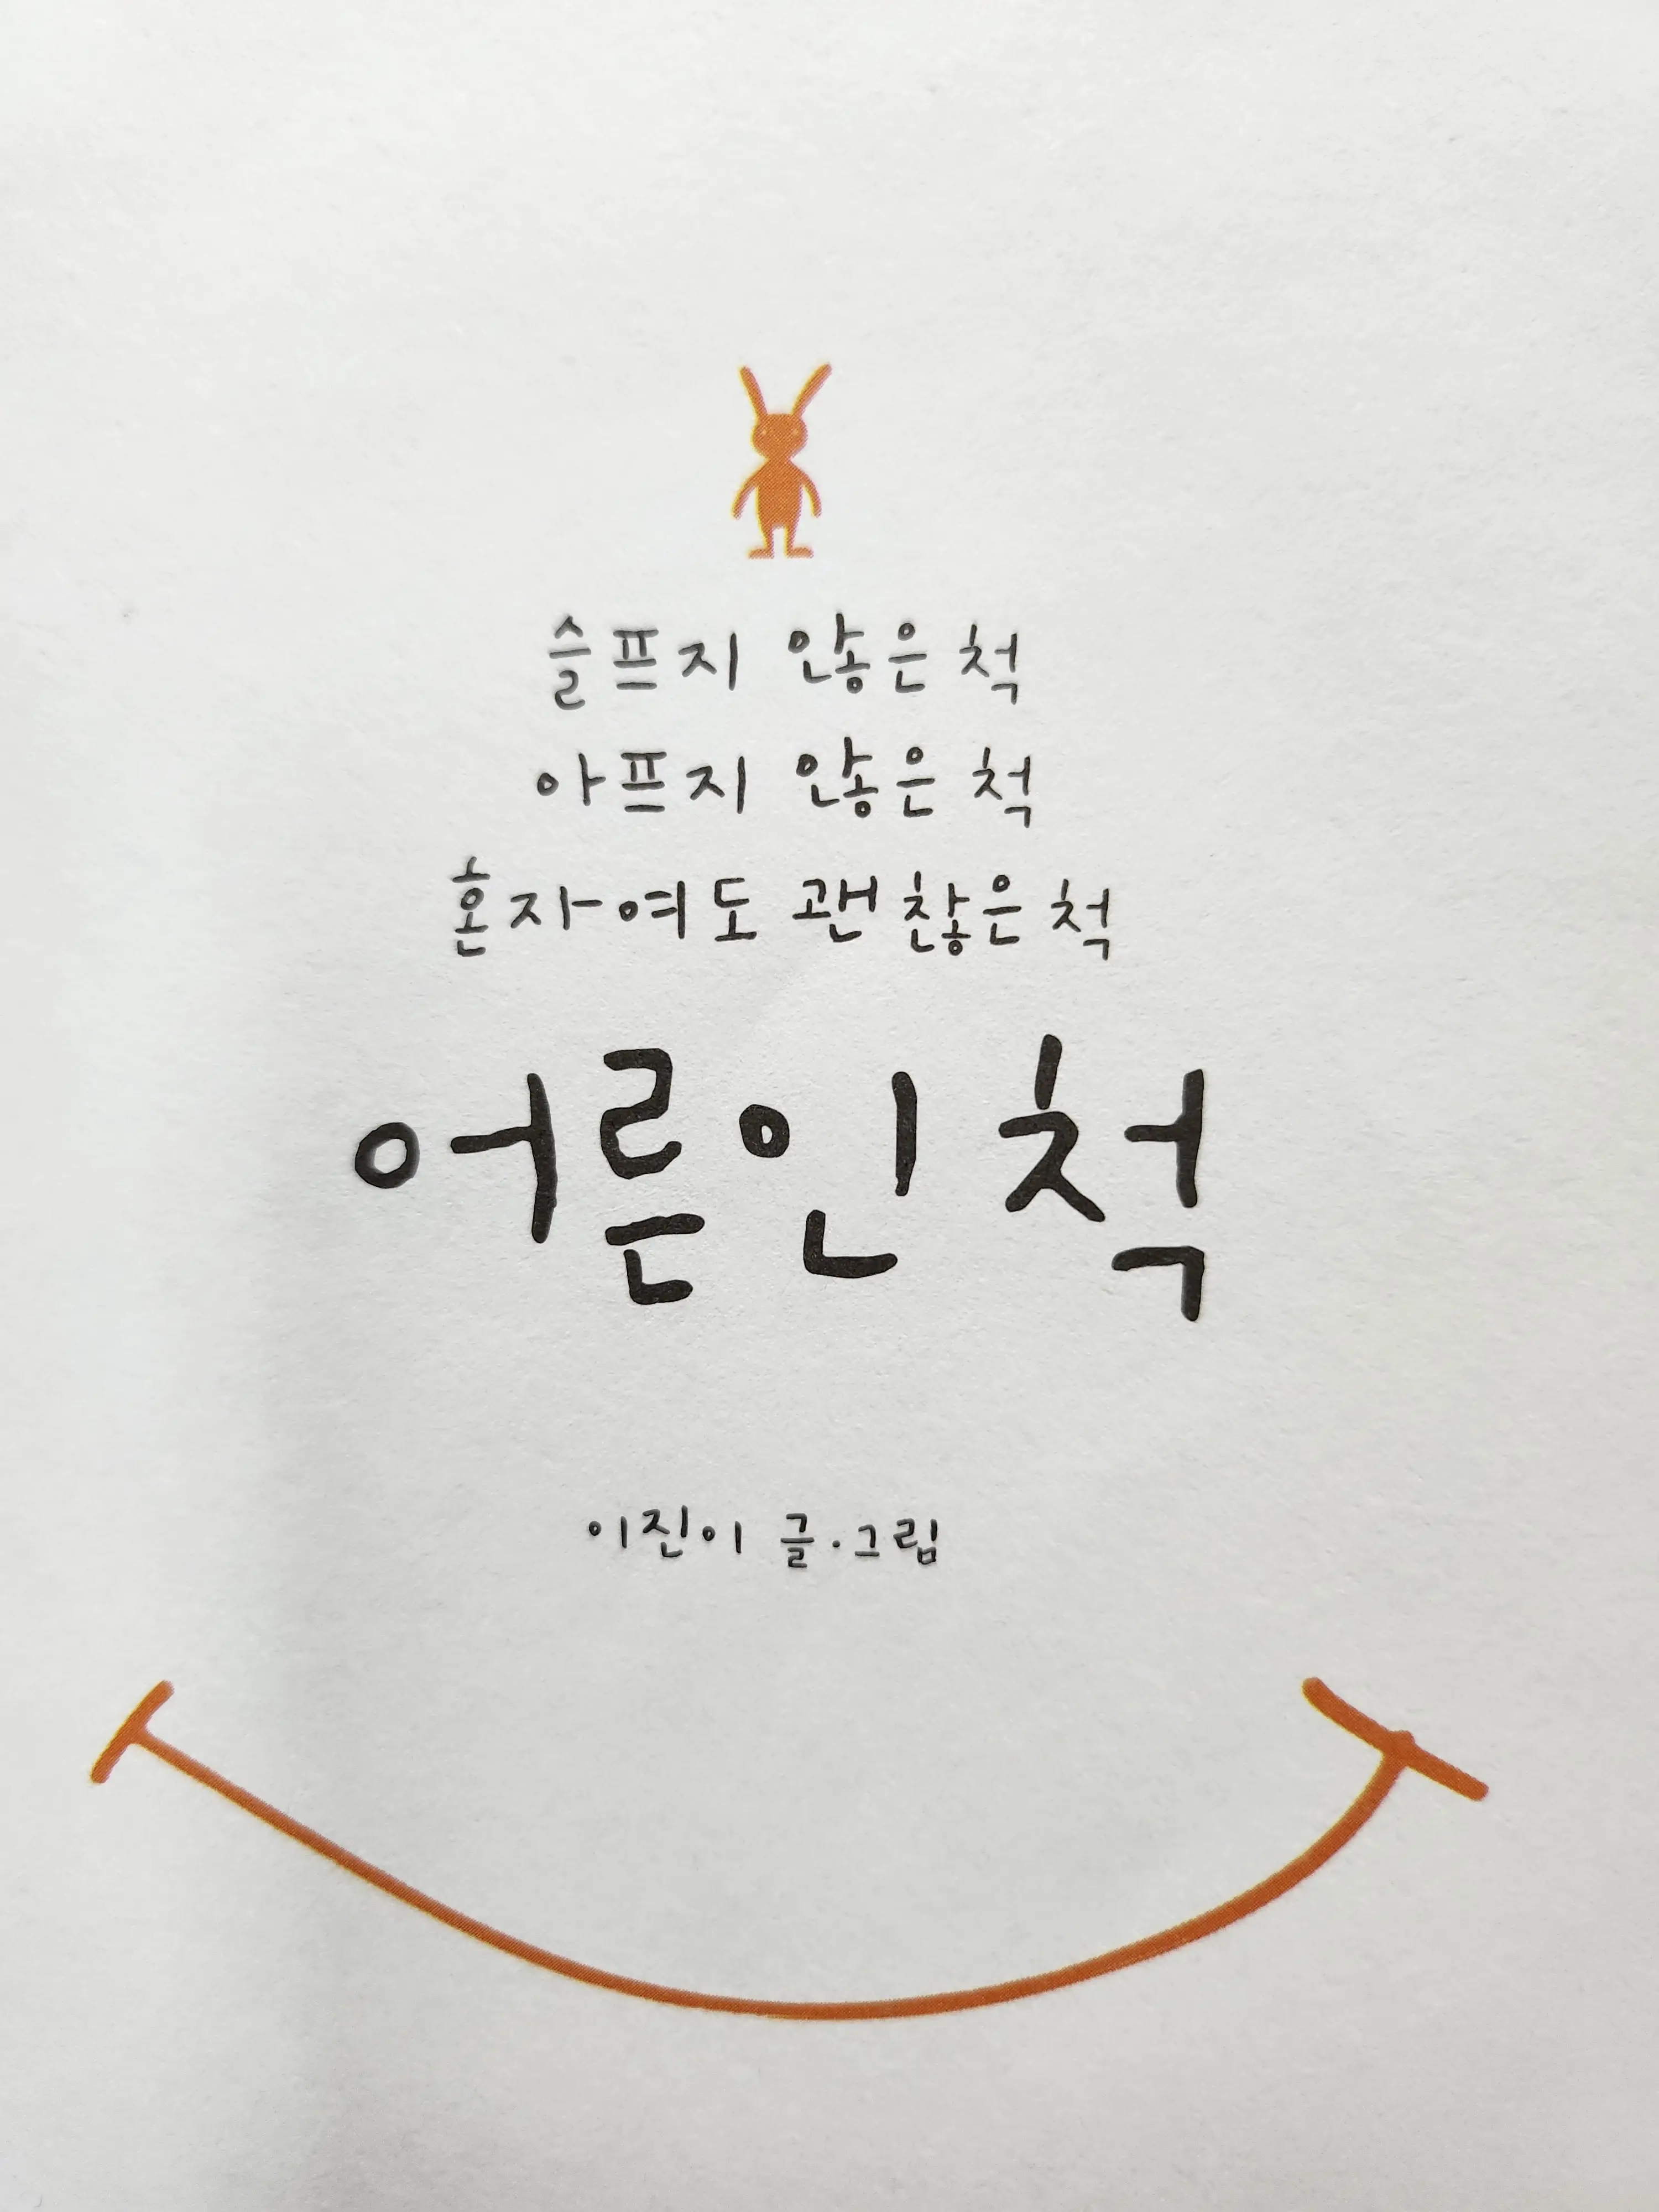 슬프지 않은 척
아프지 않은 척
혼자여도 괜찮은 척
어른인 척
이진이 글·그림